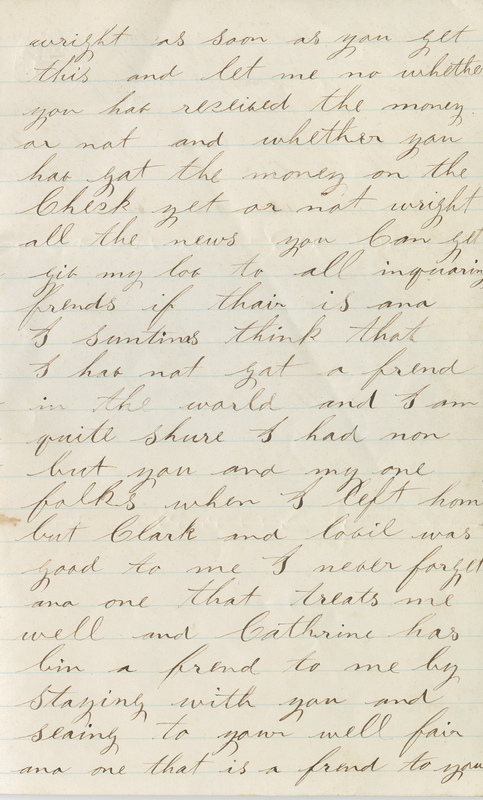 wright as soon as you get
this and let me no whether
you hav received the money
or not and whether you
hav gat the money on the
Check yet or not wright
all the news you Can get
giv my lov to all inquaring
frends if thair is ana
I suntimes think that
I hav not gat a frend
in the world and I am
quite shure I had non
but you and my one
folks when I left hom
but Clark and lovil was
good to me I never forget
ana one that treats me
well and Cathrine has
bin a frend to me by
staying with you and
seaing to your well fair
ana one that is a frend to you